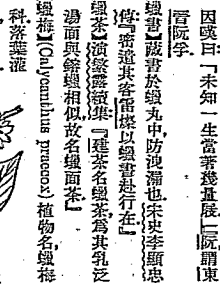 因嘆曰『未知一生當著幾量屐』阮謂東
晉阮孚
蠟書】藏書於蠟丸中，防洩漏也宋史李顯忠
傳『密遣其客雷燦以蠟書赴行在』
蠟茶】演繁露續集『建茶名蠟茶，爲其乳泛
湯面與鎔蠟相似，故名蠟面茶』
蠟梅】(Calyanthus praecox) 植物名，蠟梅
科，落葉灌